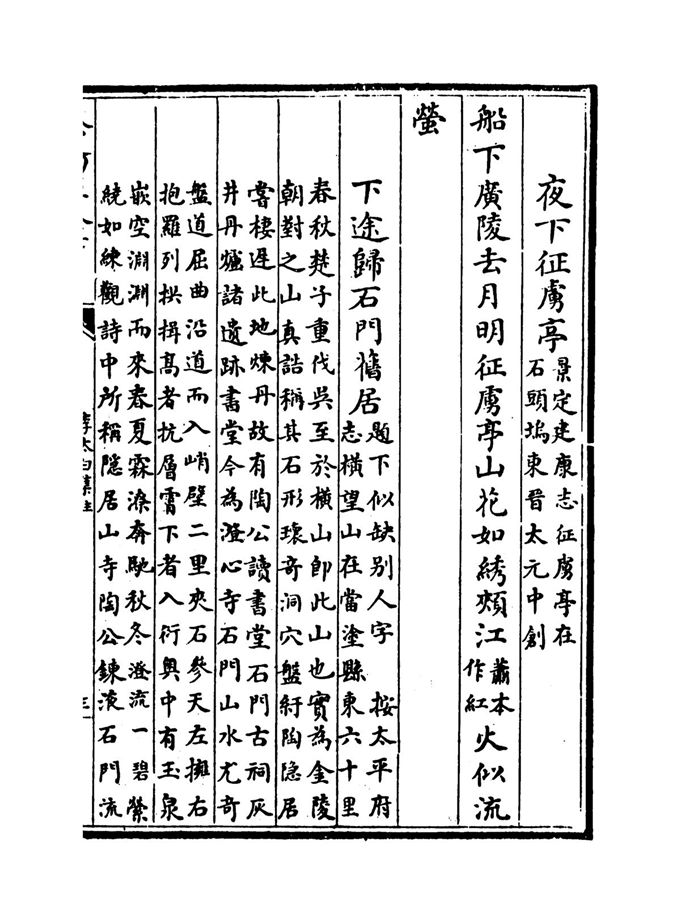 夜下征虜亭
景定建康志征虜亭在
石頭塢東晉太元中創
船下廣陵去月明征虜亭山花如綉頰江
蕭本
作紅
火似流
螢
下途歸石門舊居
題下似缺别人字　按太平府
志横望山在當塗縣東六十里
春秋楚子重伐吳至於横山即此山也實為金陵
朝對之山真誥稱其石形瓌奇洞穴盤紆陶隐居
嘗棲遲此地煉丹故有陶公讀書堂石門古祠灰
井丹爐諸遺跡書堂今為澄心寺石門山水尤奇
盤道屈曲沿道而入峭壁二里夾石參天左擁右
抱羅列拱揖髙者抗層霄下者入衍奥中有玉泉
嵌空淵淵而來春夏霖潦奔馳秋冬澄流一碧縈
繞如練觀詩中所稱隠居山寺陶公鍊液石門流
李太白集注